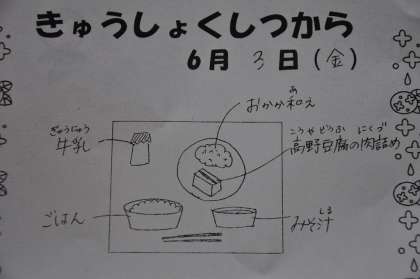 きゅうしょくしつから
6月 3日(金)
おかか和え
あ
ぎゅうにゅう
牛乳
こうやどうふ にくづ
高野豆腐の肉詰め
ごはん
しる
みそ汁